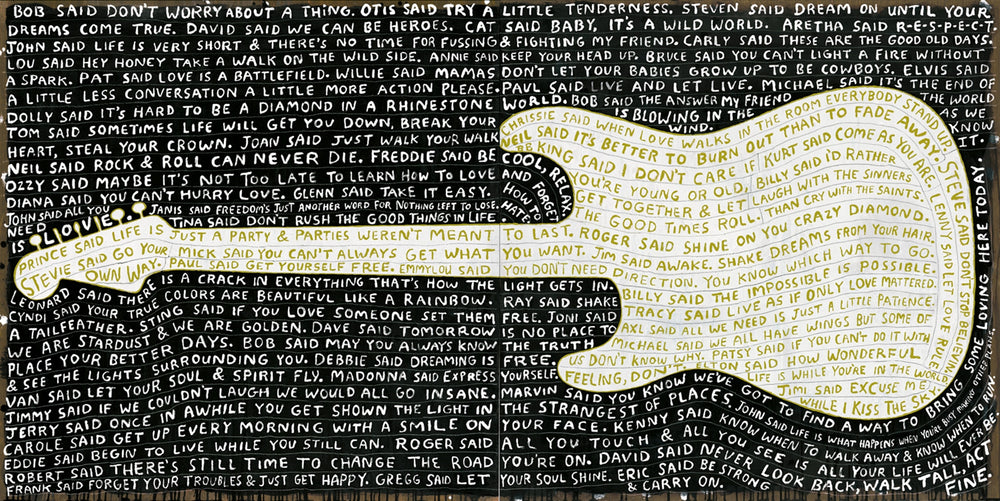 BOB SAID DON'T WORRY ABOUT A THING. OTIS SAID TRY A LITTLE TENDERNESS. STEVEN SAID DREAM ON UNTIL YOUR
DREAMS COME TRUE. DAVID SAID WE CAN BE HEROES. CAT SAID BABY, IT'S A WILD WORLD. ARETHA SAID R-E-S-P-E-C-T
JOHN SAID LIFE IS VERY SHORT & THERE'S NO TIME FOR FUSSING & FIGHTING MY FRIEND. CARLY SAID THESE ARE THE GOOD OLD DAYS.
LOU SAID HEY HONEY TAKE A WALK ON THE WILD SIDE. ANNIE SAID KEEP YOUR HEAD UP. BRUCE SAID YOU CAN'T LIGHT A FIRE WITHOUT
A SPARK. PAT SAID LOVE IS A BATTLEFIELD. WILLIE SAID MAMAS DON'T LET YOUR BABIES GROW UP TO BE COWBOYS. ELVIS SAID
A LITTLE LESS CONVERSATION A LITTLE MORE ACTION PLEASE. PAUL SAID LIVE AND LET LIVE. MICHAEL SAID IT'S THE END OF
DOLLY SAID IT'S HARD TO BE A DIAMOND IN A RHINESTONE WORLD. BOB SAID THE ANSWER MY FRIEND THE WORLD
TOM SAID SOMETIMES LIFE WILL GET YOU DOWN, BREAK YOUR IS BLOWING IN THE AS WE
HEART, STEAL YOUR CROWN. JOAN SAID JUST WALK YOUR WALK WIND. KNOW
NEIL SAID ROCK & ROLL CAN NEVER DIE. FREDDIE SAID BE COOL, RELAX IT.
OZZY SAID MAYBE IT'S NOT TOO LATE TO LEARN HOW TO LOVE AND FORGET
DIANA SAID YOU CAN'T HURRY LOVE. GLENN SAID TAKE IT EASY. HOW TO
JOHN SAID ALL YOU JANIS SAID FREEDOM'S JUST ANOTHER WORD FOR NOTHING LEFT TO LOSE. HATE.
NEED IS LOVE. TINA SAID DON'T RUSH THE GOOD THINGS IN LIFE.
CHRISSIE SAID WHEN LOVE WALKS IN THE ROOM EVERYBODY STAND UP. STEVE SAID DON'T STOP BELIEVIN'
NEIL SAID IT'S BETTER TO BURN OUT THAN TO FADE AWAY. LENNY SAID LET LOVE RULE
BB KING SAID I DON'T CARE IF KURT SAID COME AS YOU ARE.
YOU'RE YOUNG OR OLD, BILLY SAID I'D RATHER
GET TOGETHER & LET LAUGH WITH THE SINNERS
THE GOOD TIMES ROLL. THAN CRY WITH THE SAINTS.
PRINCE SAID LIFE IS JUST A PARTY & PARTIES WEREN'T MEANT TO LAST. ROGER SAID SHINE ON YOU CRAZY DIAMOND.
STEVIE SAID GO YOUR MICK SAID YOU CAN'T ALWAYS GET WHAT YOU WANT. JIM SAID AWAKE. SHAKE DREAMS FROM YOUR HAIR.
OWN WAY. PAUL SAID GET YOURSELF FREE. EMMYLOU SAID YOU DON'T NEED DIRECTION. YOU KNOW WHICH WAY TO GO.
BILLY SAID THE IMPOSSIBLE IS POSSIBLE.
TRACY SAID LIVE AS IF ONLY LOVE MATTERED.
AXL SAID ALL WE NEED IS JUST A LITTLE PATIENCE.
MICHAEL SAID WE ALL HAVE WINGS BUT SOME OF
US DON'T KNOW WHY. PATSY SAID IF YOU CAN'T DO IT WITH
FEELING, DON'T. ELTON SAID HOW WONDERFUL
LIFE IS WHILE YOU'RE IN THE WORLD
JIMI SAID EXCUSE ME
WHILE I KISS THE SKY
LEONARD SAID THERE IS A CRACK IN EVERYTHING THAT'S HOW THE LIGHT GETS IN
CYNDI SAID YOUR TRUE COLORS ARE BEAUTIFUL LIKE A RAINBOW. RAY SAID SHAKE
A TAILFEATHER. STING SAID IF YOU LOVE SOMEONE SET THEM FREE. JONI SAID
WE ARE STARDUST & WE ARE GOLDEN. DAVE SAID TOMORROW IS NO PLACE TO
PLACE YOUR BETTER DAYS. BOB SAID MAY YOU ALWAYS KNOW THE TRUTH
& SEE THE LIGHTS SURROUNDING YOU. DEBBIE SAID DREAMING IS FREE.
VAN SAID LET YOUR SOUL & SPIRIT FLY. MADONNA SAID EXPRESS YOURSELF.
JIMMY SAID IF WE COULDN'T LAUGH WE WOULD ALL GO INSANE. MARVIN SAID YOU KNOW WE'VE GOT TO FIND A WAY TO BRING SOME LOVING HERE TODAY.
JERRY SAID ONCE IN AWHILE YOU GET SHOWN THE LIGHT IN THE STRANGEST OF PLACES, JOHN SAID LIFE IS WHAT HAPPENS WHEN YOU'RE BUSY MAKING OTHER PLANS
CAROLE SAID GET UP EVERY MORNING WITH A SMILE ON YOUR FACE. KENNY SAID KNOW WHEN TO WALK AWAY & KNOW WHEN TO RUN.
EDDIE SAID BEGIN TO LIVE WHILE YOU STILL CAN. ROGER SAID ALL YOU TOUCH & ALL YOU SEE IS ALL YOUR LIFE WILL EVER BE
ROBERT SAID THERE'S STILL TIME TO CHANGE THE ROAD YOU'RE ON. DAVID SAID NEVER LOOK BACK, WALK TALL, ACT FINE.
FRANK SAID FORGET YOUR TROUBLES & JUST GET HAPPY. GREGG SAID LET YOUR SOUL SHINE. ERIC SAID BE STRONG & CARRY ON.